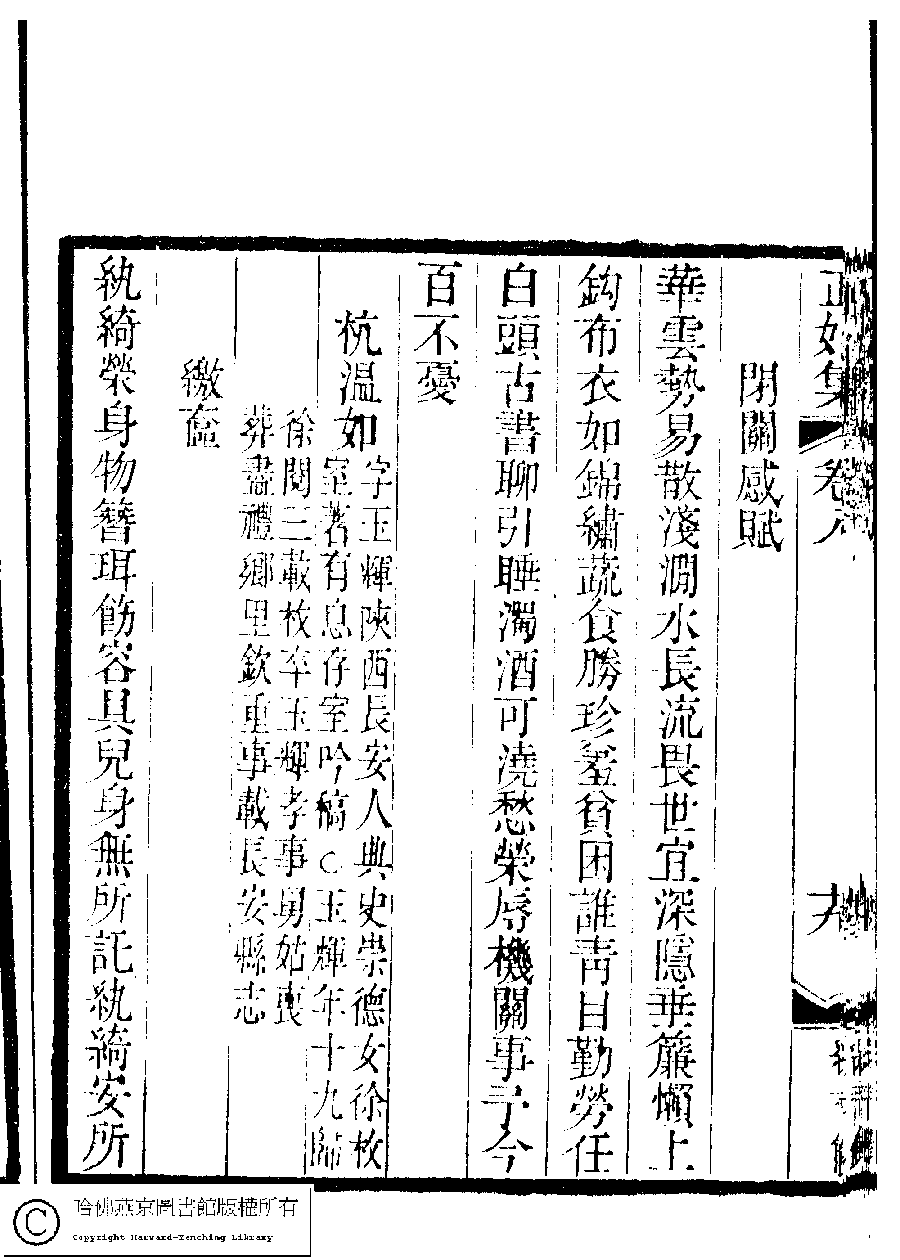 正始集 卷八
閉關感賦
華雲勢易散淺澗水長流畏世宜深隱垂簾懶上
鈎布衣如錦繡蔬食勝珍羞貧困誰青目勤勞任
白頭古書聊引睡濁酒可澆愁榮辱機關事于今
百不憂
杭溫如
字玉輝陝西長安人典史崇德女徐枚
室著有息存室吟稿○玉輝年十九歸
徐閱三載枚卒玉輝孝事舅姑喪
葬盡禮鄉里欽重事載長安縣志
繳奩
紈綺榮身物簪珥飾容具兒身無所託紈綺安所
哈佛燕京圖書館版權所有
Copyright Harvard-Yenching Library